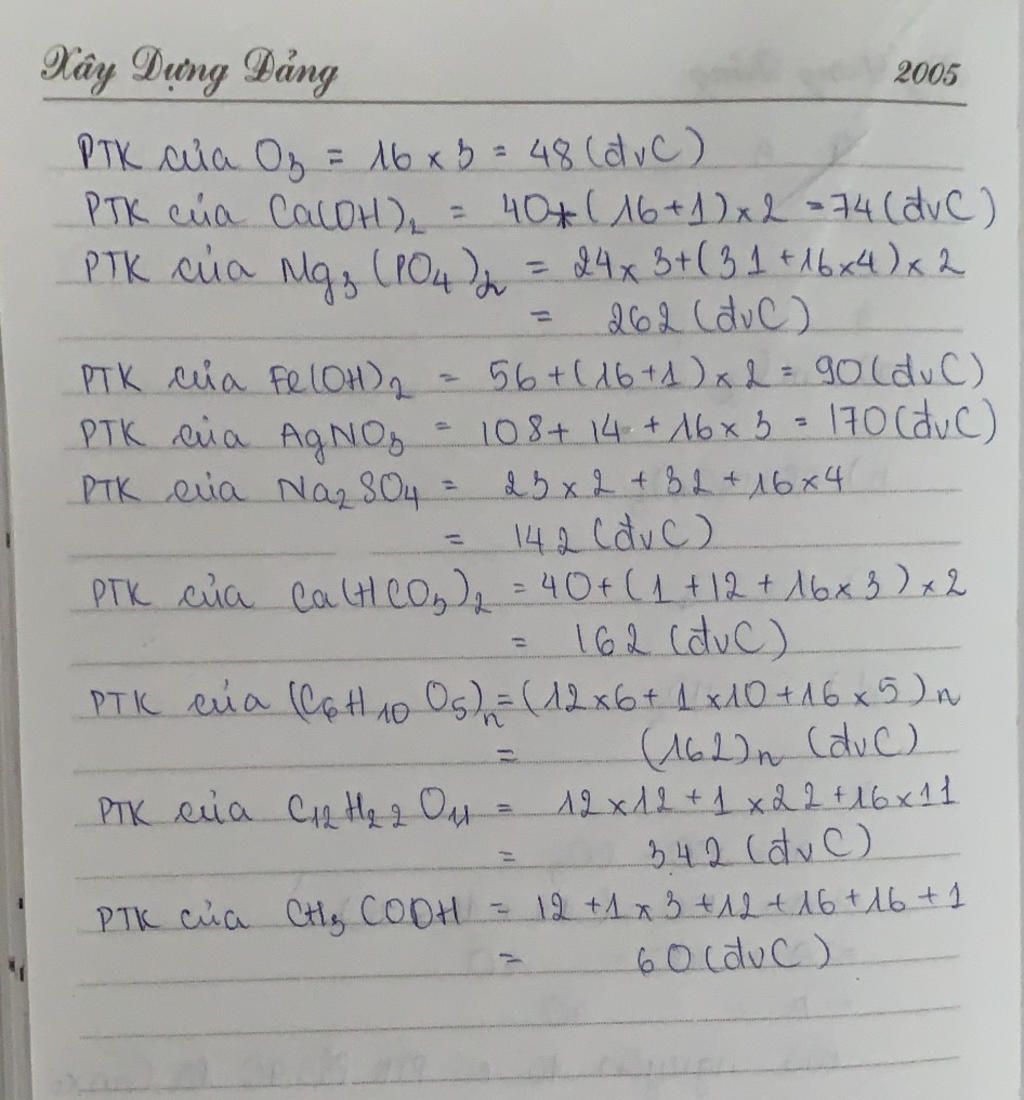 Xây Dựng Đảng 2005
PTK của O₃ = 16 × 3 = 48 (đvC)
PTK của Ca(OH)₂ = 40+(16+1)×2 = 74 (đvC)
PTK của Mg₃(PO₄)₂ = 24×3+(31+16×4)×2
= 262 (đvC)
PTK của Fe(OH)₂ = 56+(16+1)×2 = 90 (đvC)
PTK của AgNO₃ = 108+14+16×3 = 170 (đvC)
PTK của Na₂SO₄ = 23×2+32+16×4
= 142 (đvC)
PTK của Ca(HCO₃)₂ = 40+(1+12+16×3)×2
= 162 (đvC)
PTK của (C₆H₁₀O₅)ₙ = (12×6+1×10+16×5)n
= (162)n (đvC)
PTK của C₁₂H₂₂O₁₁ = 12×12+1×22+16×11
= 342 (đvC)
PTK của CH₃COOH = 12+1×3+12+16+16+1
= 60 (đvC)